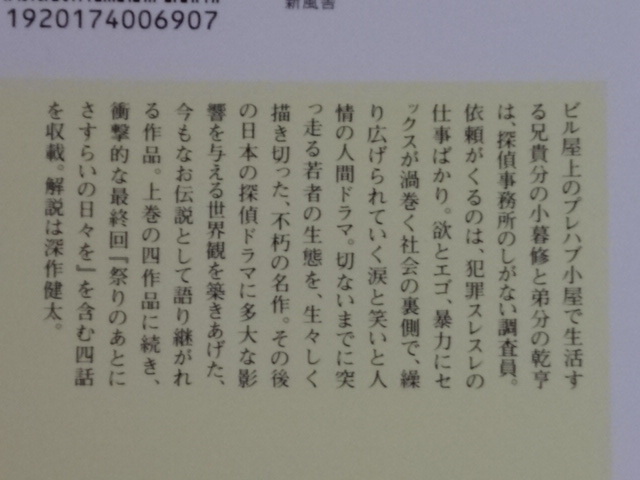 1920174006907
新風舎
ビル屋上のプレハブ小屋で生活す
る兄貴分の小暮修と弟分の乾亨
は、探偵事務所のしがない調査員。
依頼がくるのは、犯罪スレスレの
仕事ばかり。欲とエゴ、暴力にセ
ックスが渦巻く社会の裏側で、繰
り広げられていく涙と笑いと人
情の人間ドラマ。切ないまでに突
っ走る若者の生態を、生々しく
描き切った、不朽の名作。その後
の日本の探偵ドラマに多大な影
響を与える世界観を築きあげた、
今もなお伝説として語り継がれ
る作品。上巻の四作品に続き、
衝撃的な最終回『祭りのあとに
さすらいの日々を』を含む四話
を収載。解説は深作健太。